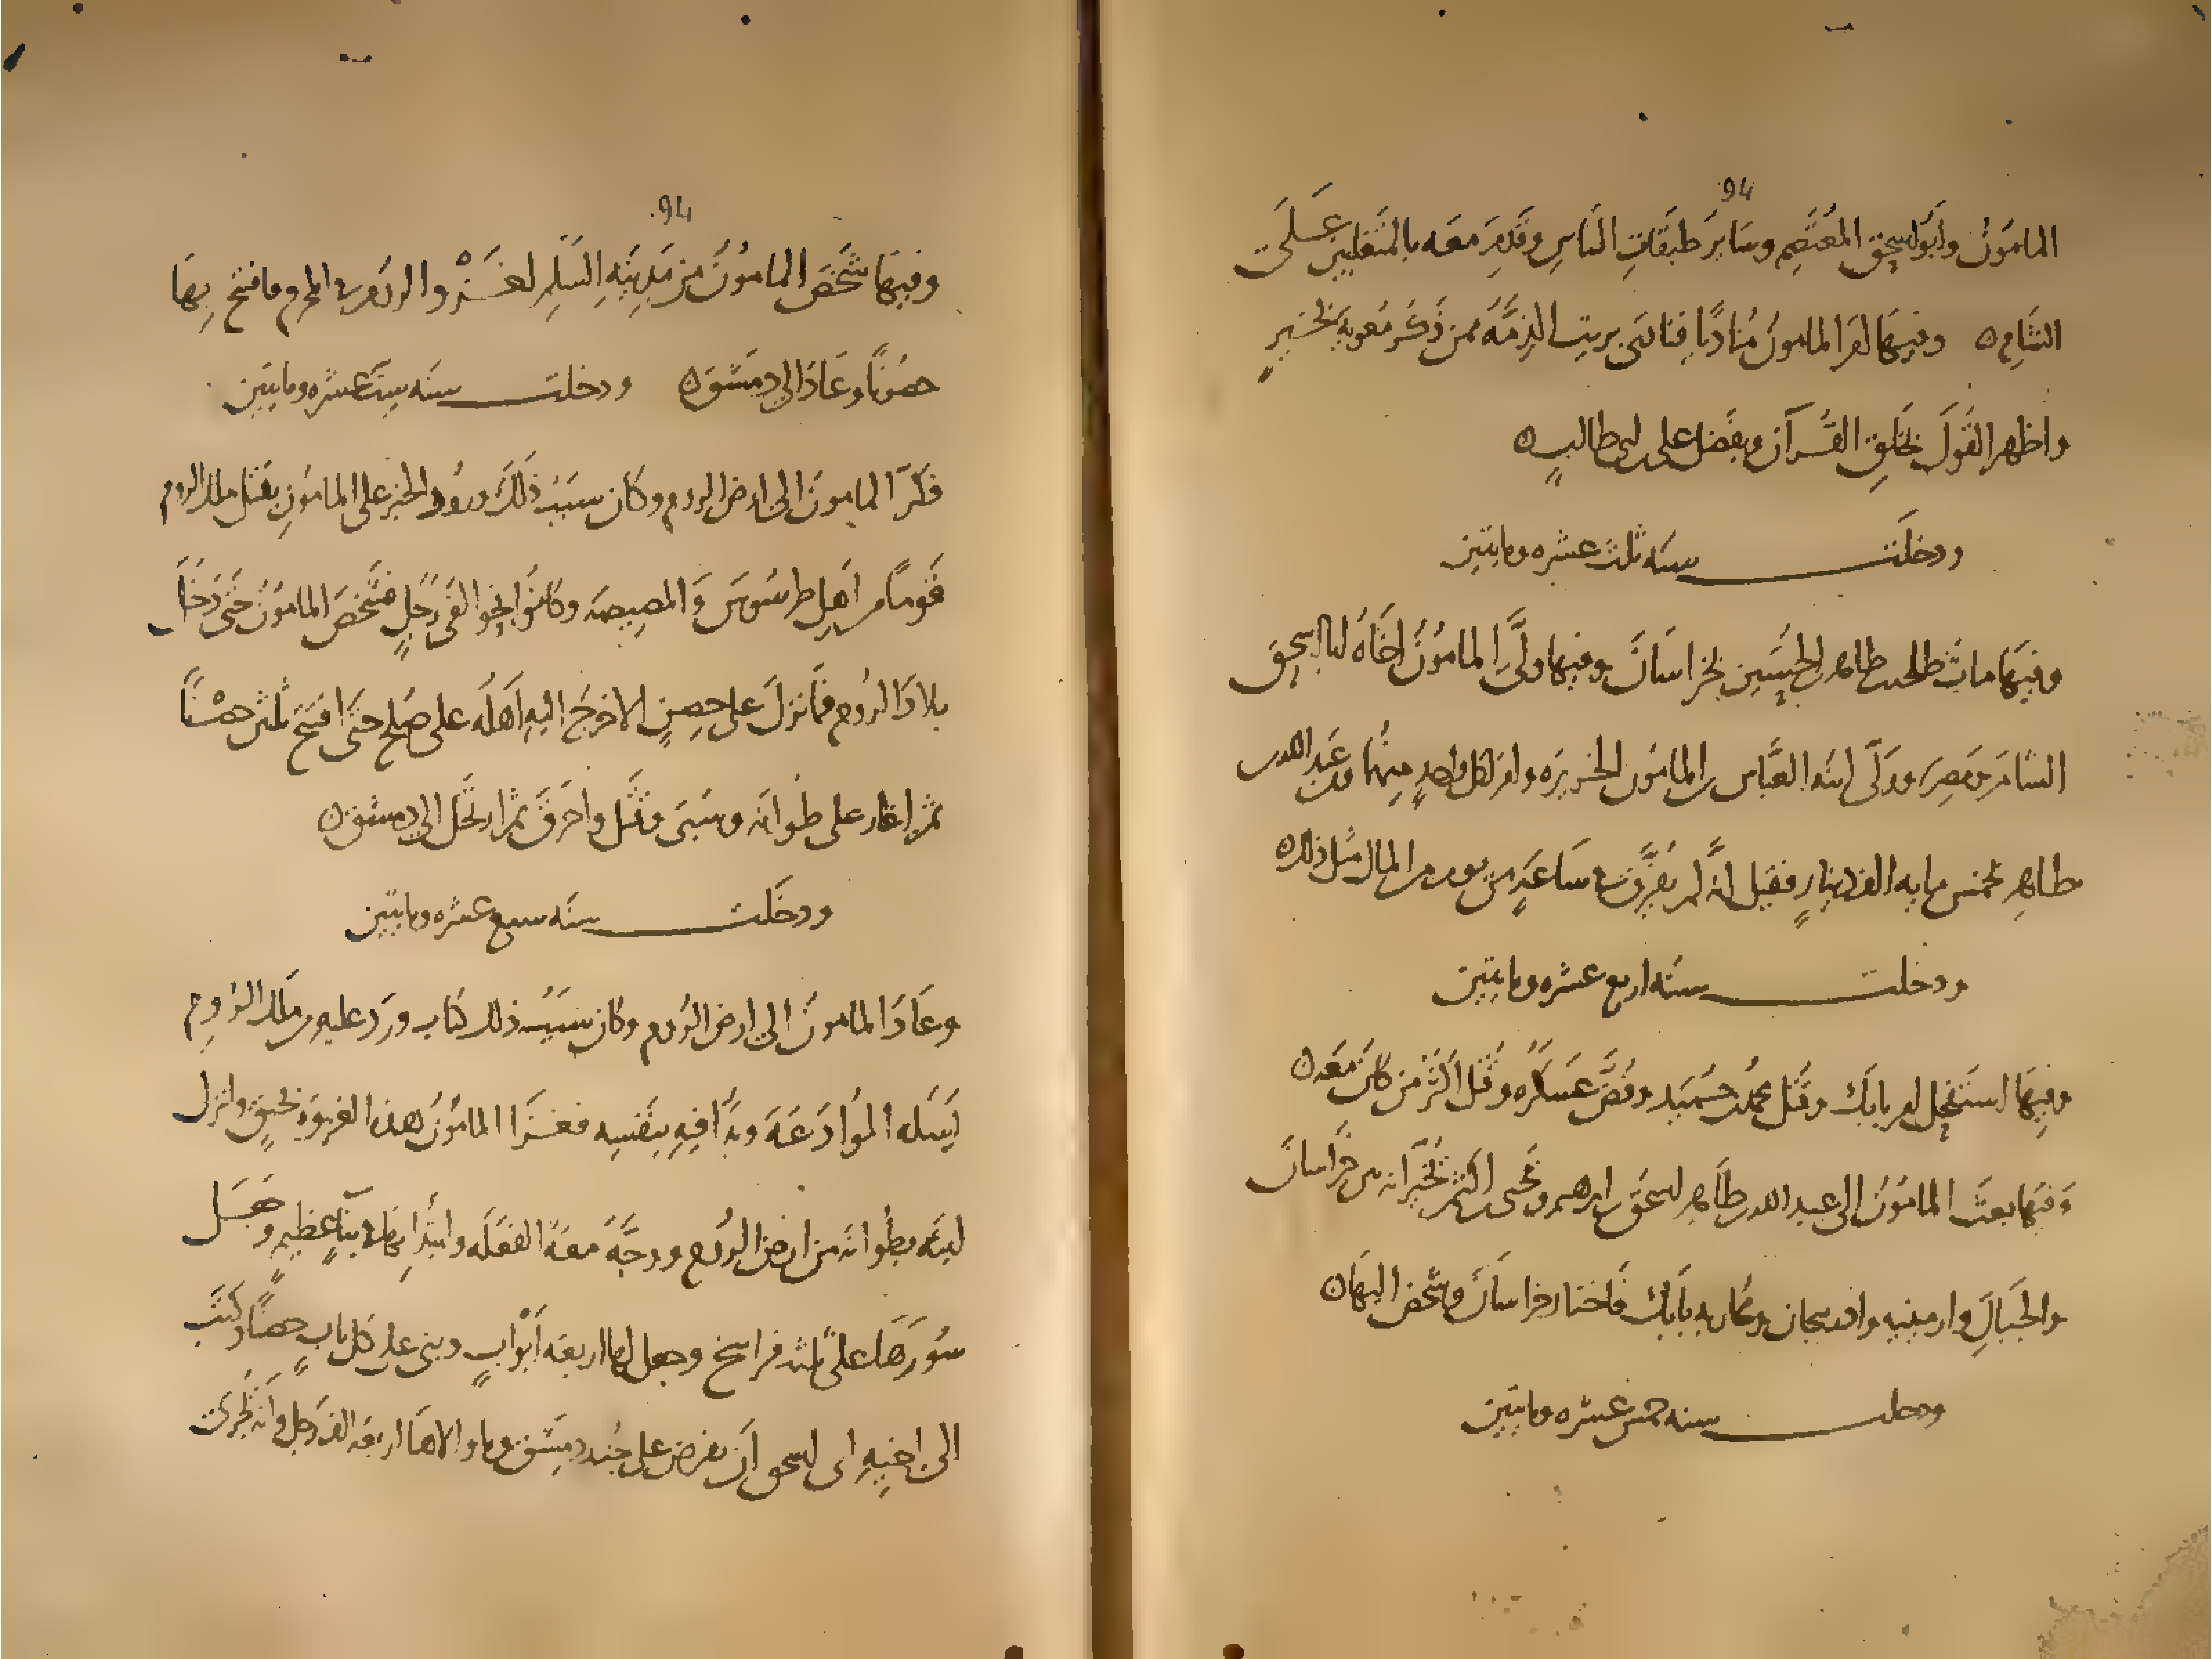 94
المامون وابو اسحق المعتصم وساير طبقات الناس وقدم معه بالمتغلبين على
الشام ه وفيها امر المامون مناديا فنادى بريت الذمة ممن ذكر معوية بخير
واظهر القول بخلق القرآن وبفضل على بن ابى طالب ه
ودخلت سنه ثلث عشره ومايتين
وفيها مات طلحه بن طاهر بن الحسين بخراسان وفيها ولى المامون اخاه ابا اسحق
الشام ومصر وولى ابنه العباس بن المامون الجزيره وامر لكل واحد منهما ولعبد الله بن
طاهر بخمس مايه الف دينار فقيل انه لم يفرق فى ساعة من يوم من المال مثل ذلك ه
ودخلت سنه اربع عشره ومايتين
وفيها استفحل امر بابك وقتل محمد بن حميد وفض عسكره وقتل اكثر من كان معه ه
وفيها بعث المامون الى عبد الله بن طاهر اسحق بن ابرهيم ويحيى بن اكثم يخيرانه بين خراسان
والجبال وارمينيه واذربيجان ومحاربه بابك فاختار خراسان وشخص اليها ه
ودخلت سنه خمس عشره ومايتين
94
وفيها شخص المامون من مدينه السلم لغزو الروم فى المحرم فافتتح بها
حصونا وعاد الى دمشق ه ودخلت سنه ست عشره ومايتين
فكر المامون الى ارض الروم وكان سبب ذلك ورود الخبر على المامون بقتل ملك الروم
قوما من اهل طرسوس والمصيصه وكانوا نحوا الفى رجل فشخص المامون حتى دخل
بلاد الروم فما نزل على حصن الا خرج اليه اهله على صلح حتى افتتح ثلثين حصنا
ثم اغار على طوانه وسبى وقتل واحرق ثم ارتحل الى دمشق ه
ودخلت سنه سبع عشره ومايتين
وعاد المامون الى ارض الروم وكان سبب ذلك كتاب ورد عليه من ملك الروم
يسله الموادعة وبدا فيه بنفسه فغزا المامون هذه الغزوه بحنق وانزل
ابنه بطوانه من ارض الروم ووجه معه الفعله وابتدا بها بناء عظيم وجعل
سورها على ثلثه فراسخ وجعل لها اربعه ابواب وبنى على كل باب حصنا وكتب
الى اخيه ابى اسحق ان يفرض على جند دمشق وما والاها اربعه الف رجل وانه يجرى